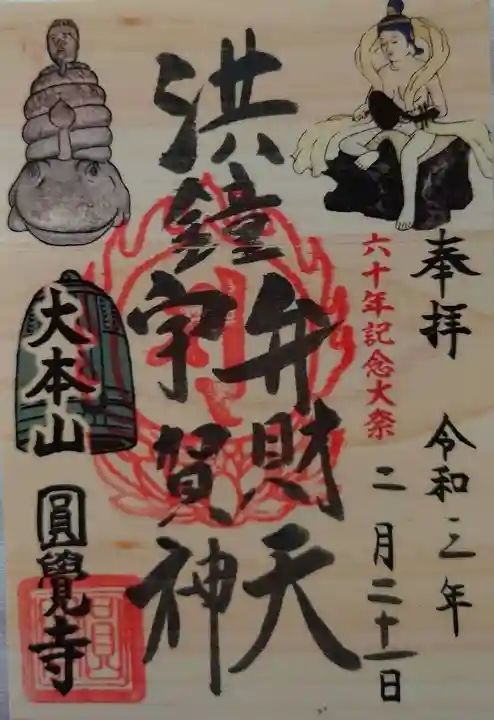 奉拝
令和三年
二月二十一日
六十年記念大祭
洪鐘
弁財天
宇賀神
大本山
圓覺寺